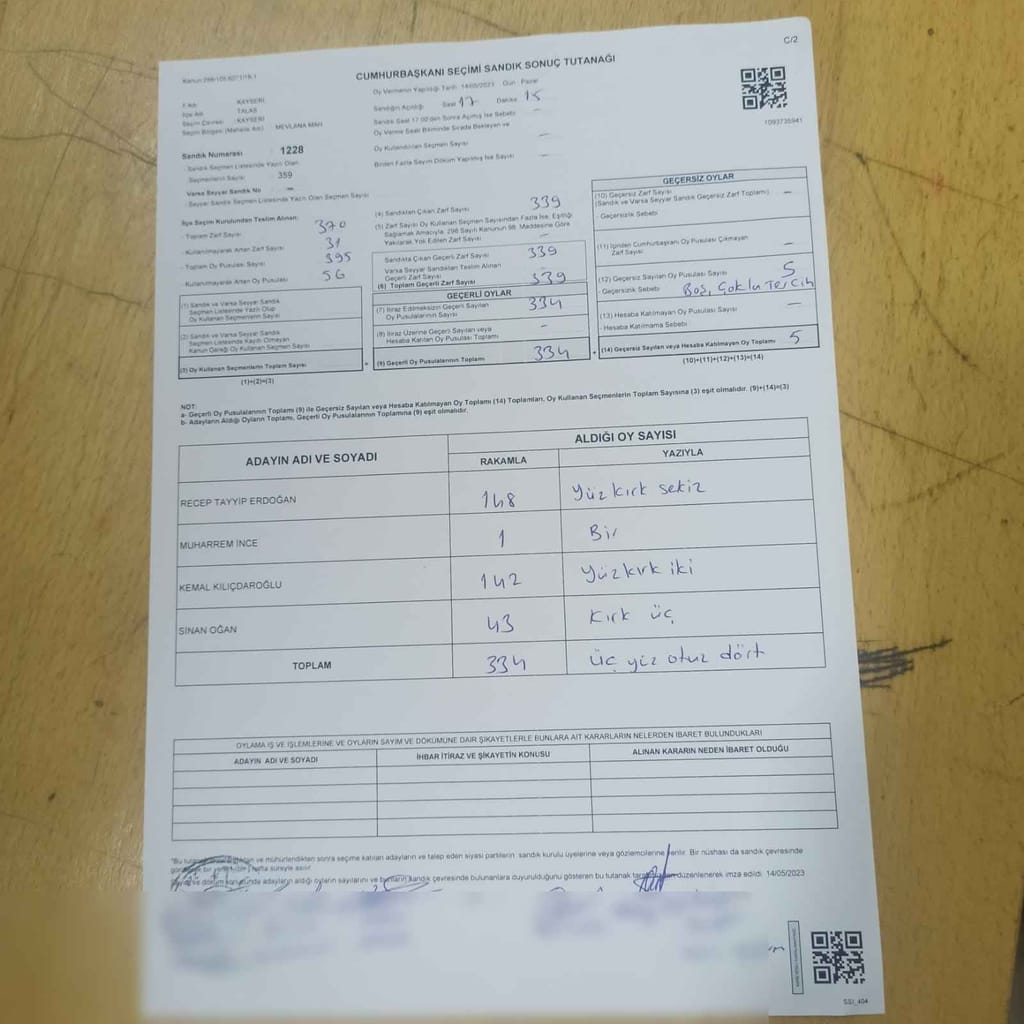 C/2
CUMHURBAŞKANI SEÇİMİ SANDIK SONUÇ TUTANAĞI
Oy Vermenin Yapıldığı Tarih: 14/05/2023 Gün: Pazar
İl Adı : KAYSERİ
İlçe Adı : TALAS
Seçim Çevresi : KAYSERİ
Seçim Bölgesi (Mahalle Adı) : MEVLANA MAH
Sandığın Açıldığı Saat 17 Dakika 15
Sandık Saat 17.00'den Sonra Açılmış İse Sebebi —
Oy Verme Saati Bitiminde Sırada Bekleyen ve
Oy Kullandırılan Seçmen Sayısı —
Birden Fazla Sayım Döküm Yapılmış İse Sayısı —
1093735941
Sandık Numarası 1228
Sandık Seçmen Listesinde Yazılı Olan
Seçmenlerin Sayısı 359
Varsa Seyyar Sandık No —
Seyyar Sandık Seçmen Listesinde Yazılı Olan Seçmen Sayısı
İlçe Seçim Kurulundan Teslim Alınan:
- Toplam Zarf Sayısı 370
- Kullanılmayarak Artan Zarf Sayısı 31
- Toplam Oy Pusulası Sayısı 395
- Kullanılmayarak Artan Oy Pusulası 56
(1) Sandık ve Varsa Seyyar Sandık
Seçmen Listesinde Yazılı Olup
Oy Kullanan Seçmenlerin Sayısı
(2) Sandık ve Varsa Seyyar Sandık
Seçmen Listesinde Kayıtlı Olmayan
Kanun Gereği Oy Kullanan Seçmen Sayısı
(3) Oy Kullanan Seçmenlerin Toplam Sayısı
(1)+(2)=(3)
(4) Sandıktan Çıkan Zarf Sayısı 339
(5) Zarf Sayısı Oy Kullanan Seçmen Sayısından Fazla İse, Eşitliği
Sağlamak Amacıyla, 298 Sayılı Kanunun 98. Maddesine Göre
Yakılarak Yok Edilen Zarf Sayısı —
Sandıkta Çıkan Geçerli Zarf Sayısı 339
Varsa Seyyar Sandıktan Teslim Alınan
Geçerli Zarf Sayısı
(6) Toplam Geçerli Zarf Sayısı 339
GEÇERLİ OYLAR
(7) İtiraz Edilmeksizin Geçerli Sayılan
Oy Pusulalarının Sayısı 334
(8) İtiraz Üzerine Geçerli Sayılan veya
Hesaba Katılan Oy Pusulası Toplamı —
(9) Geçerli Oy Pusulalarının Toplamı 334
GEÇERSİZ OYLAR
(10) Geçersiz Zarf Sayısı —
(Sandık ve Varsa Seyyar Sandık Geçersiz Zarf Toplamı)
- Geçersizlik Sebebi
(11) İçinden Cumhurbaşkanı Oy Pusulası Çıkmayan
Zarf Sayısı —
(12) Geçersiz Sayılan Oy Pusulası Sayısı 5
- Geçersizlik Sebebi Boş, Çoklu Tercih
(13) Hesaba Katılmayan Oy Pusulası Sayısı —
- Hesaba Katılmama Sebebi
(14) Geçersiz Sayılan veya Hesaba Katılmayan Oy Toplamı 5
(10)+(11)+(12)+(13)=(14)
NOT:
a- Geçerli Oy Pusulalarının Toplamı (9) ile Geçersiz Sayılan veya Hesaba Katılmayan Oy Toplamı (14) Toplamları, Oy Kullanan Seçmenlerin Toplam Sayısına (3) eşit olmalıdır. (9)+(14)=(3)
b- Adayların Aldığı Oyların Toplamı, Geçerli Oy Pusulalarının Toplamına (9) eşit olmalıdır.
ADAYIN ADI VE SOYADI
ALDIĞI OY SAYISI
RAKAMLA YAZIYLA
RECEP TAYYİP ERDOĞAN 148 Yüzkırk sekiz
MUHARREM İNCE 1 Bir
KEMAL KILIÇDAROĞLU 142 Yüzkırk iki
SİNAN OĞAN 43 Kırk üç
TOPLAM 334 üç yüz otuz dört
OYLAMA İŞ VE İŞLEMLERİNE VE OYLARIN SAYIM VE DÖKÜMÜNE DAİR ŞİKAYETLERLE BUNLARA AİT KARARLARIN NELERDEN İBARET BULUNDUKLARI
ADAYIN ADI VE SOYADI İHBAR İTİRAZ VE ŞİKAYETİN KONUSU ALINAN KARARIN NEDEN İBARET OLDUĞU
ve mühürlendikten sonra seçime katılan adayların ve talep eden siyasi partilerin sandık kurulu üyelerine veya gözlemcilerine verilir. Bir nüshası da sandık çevresinde
hafta süreyle asılır.
adayların aldığı oyların sayılarını ve bunların sandık çevresinde bulunanlara duyurulduğunu gösteren bu tutanak düzenlenerek imza edildi. 14/05/2023
SSI_404